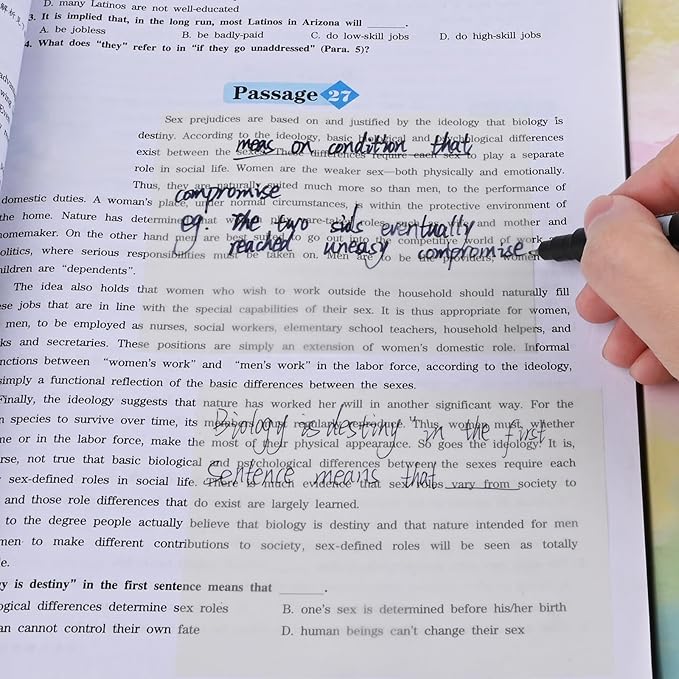 D. many Latinos are not well-educated
3. It is implied that, in the long run, most Latinos in Arizona will ______.
A. be jobless B. be badly-paid C. do low-skill jobs D. do high-skill jobs
4. What does "they" refer to in "if they go unaddressed" (Para. 5)?
Passage 27
Sex prejudices are based on and justified by the ideology that biology is
destiny. According to the ideology, basic biological and psychological differences
meas on condition that
exist between the sexes. These differences require each sex to play a separate
role in social life. Women are the weaker sex—both physically and emotionally.
Thus, they are naturally suited much more so than men, to the performance of
compromise
domestic duties. A woman's place, under normal circumstances, is within the protective environment of
the home. Nature has determined that women play care-taking roles, such as wife and mother and
eg. The two sids eventually
homemaker. On the other hand men are best suited to go out into the competitive world of work
reached uneasy compromise.
olitics, where serious responsibilities must be taken on. Men are to be the providers; women
hildren are "dependents".
The idea also holds that women who wish to work outside the household should naturally fill
se jobs that are in line with the special capabilities of their sex. It is thus appropriate for women,
men, to be employed as nurses, social workers, elementary school teachers, household helpers, and
ks and secretaries. These positions are simply an extension of women's domestic role. Informal
nctions between "women's work" and "men's work" in the labor force, according to the ideology,
simply a functional reflection of the basic differences between the sexes.
Finally, the ideology suggests that nature has worked her will in another significant way. For the
n species to survive over time, its members must regularly reproduce. Thus, women must, whether
Biology is destiny" in the first
me or in the labor force, make the most of their physical appearance. So goes the ideology. It is,
rse, not true that basic biological and psychological differences between the sexes require each
sentence means that
sex-defined roles in social life. There is evidence that sex roles vary from society to
and those role differences that do exist are largely learned.
to the degree people actually believe that biology is destiny and that nature intended for men
men to make different contributions to society, sex-defined roles will be seen as totally
e.
y is destiny" in the first sentence means that ______.
ogical differences determine sex roles B. one's sex is determined before his/her birth
an cannot control their own fate D. human beings can't change their sex